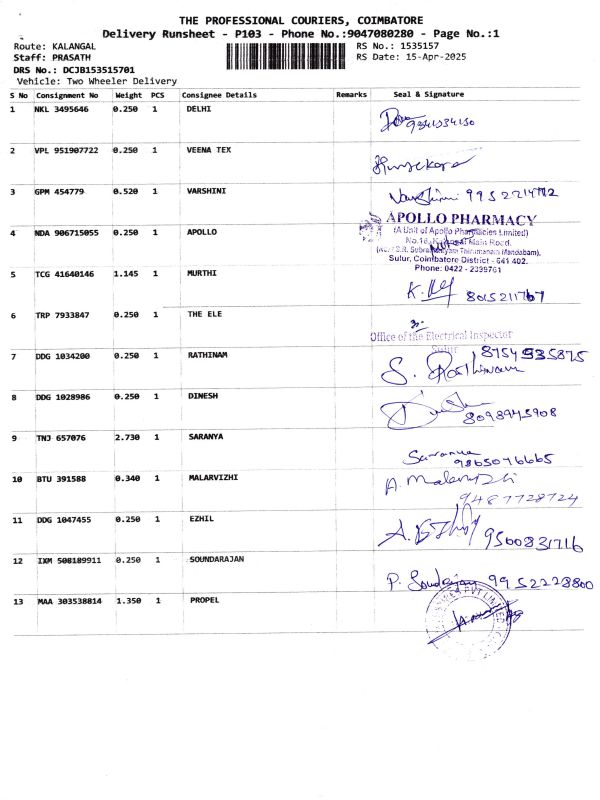 THE PROFESSIONAL COURIERS, COIMBATORE
Delivery Runsheet - P103 - Phone No.:9047080280 - Page No.:1
Route: KALANGAL
RS No.: 1535157
Staff: PRASATH
RS Date: 15-Apr-2025
DRS No.: DCJB153515701
Vehicle: Two Wheeler Delivery
S No Consignment No Weight PCS Consignee Details Remarks Seal & Signature
1 NKL 3495646 0.250 1 DELHI
2 VPL 951907722 0.250 1 VEENA TEX
3 GPM 454779 0.520 1 VARSHINI Varshini
APOLLO PHARMACY
(A Unit of Apollo Pharmacies Limited)
4 NDA 906715055 0.250 1 APOLLO
Sulur, Coimbatore District - 641 402.
Phone: 0422 - 2339761
5 TCG 41640146 1.145 1 MURTHI
8015211767
6 TRP 7933847 0.250 1 THE ELE
Office of the Electrical Inspector
Sulur
7 DDG 1034200 0.250 1 RATHINAM 8754935875
S. Rathinam
8 DDG 1028986 0.250 1 DINESH
8098945908
9 TNJ 657076 2.730 1 SARANYA Saranya
9865046665
10 BTU 391588 0.340 1 MALARVIZHI A. Malarvizhi
9487728724
11 DDG 1047455 0.250 1 EZHIL A. Ezhil 9500831716
12 IXM 508189911 0.250 1 SOUNDARAJAN
P. Soundarajan 9952228800
13 MAA 303538814 1.350 1 PROPEL